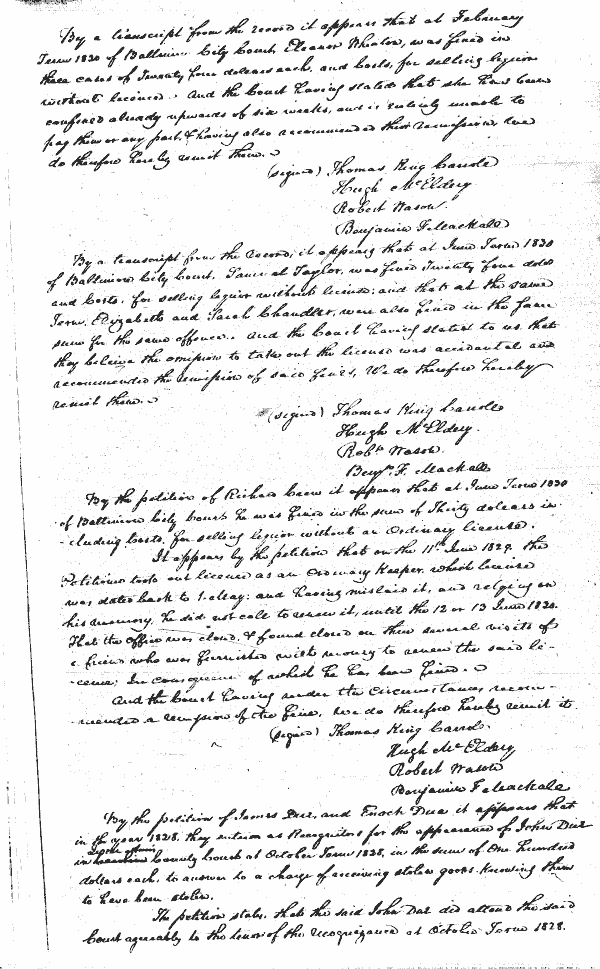 By a transcript from the record it appears that at February
Term 1830 of Baltimore City Court Eleanor Wheaton, was fined in
three cases of Twenty four dollars each, and Costs, for selling liquor
without licence. And the Court having stated that she has been
confined already upwards of six weeks, and is entirely unable to
pay them or any part, & having also recommended their remission, we
do therefore hereby remit them.
(signed) Thomas King Carroll
Hugh McEldery
Robert Wason
Benjamin F Mackall
By a transcript from the record, it appears that at June Term 1830
of Baltimore City Court, Samuel Taylor, was fined Twenty four dolls
and Costs, for selling liquor without license; and that at the same
Term, Elizabeth and Sarah Chandler, were also fined in the same
sum for the same offence. And the Court having stated to us that
they believe the omission to take out the license was accidental and
recommended the remission of said fines, We do therefore hereby
remit them.
(signed) Thomas King Carroll
Hugh McEldery.
Robt. Wason.
Benjn. F. Mackall
By the petition of Richard Crew it appears that at June Term 1830
of Baltimore City Court he was fined in the sum of Thirty dollars in-
-cluding Costs, for selling liquor without an Ordinary license.
It appears by the petition that on the 11th June 1829. the
Petitioner took out license as an Ordinary Keeper, which license
was dated back to 1. May: and having mislaid it, and relying on
his memory, he did not call to renew it, until the 12 or 13 June 1830.
That the office was closed, & found closed on three several visits of
a friend who was furnished with money to renew the said li-
-cense; In consequence of which he has been fined.
And the Court having under the circumstances recom-
-mended a remission of the fine, We do therefore hereby remit it.
(signed) Thomas King Carroll.
Hugh McEldery
Robert Wason
Benjamin F Mackall
By the petition of James Dur, and Enoch Dur it appears that
in the year 1828, they entered as Recognitors for the appearance of John Dur
in County Court at October Term 1828, in the sum of One Hundred
dollars each, to answer to a charge of receiving stolen goods knowing them
to have been stolen.
The petition states, that the said John Dur did attend the said
Court agreeably to the tenor of the recognizance at October Term 1828.